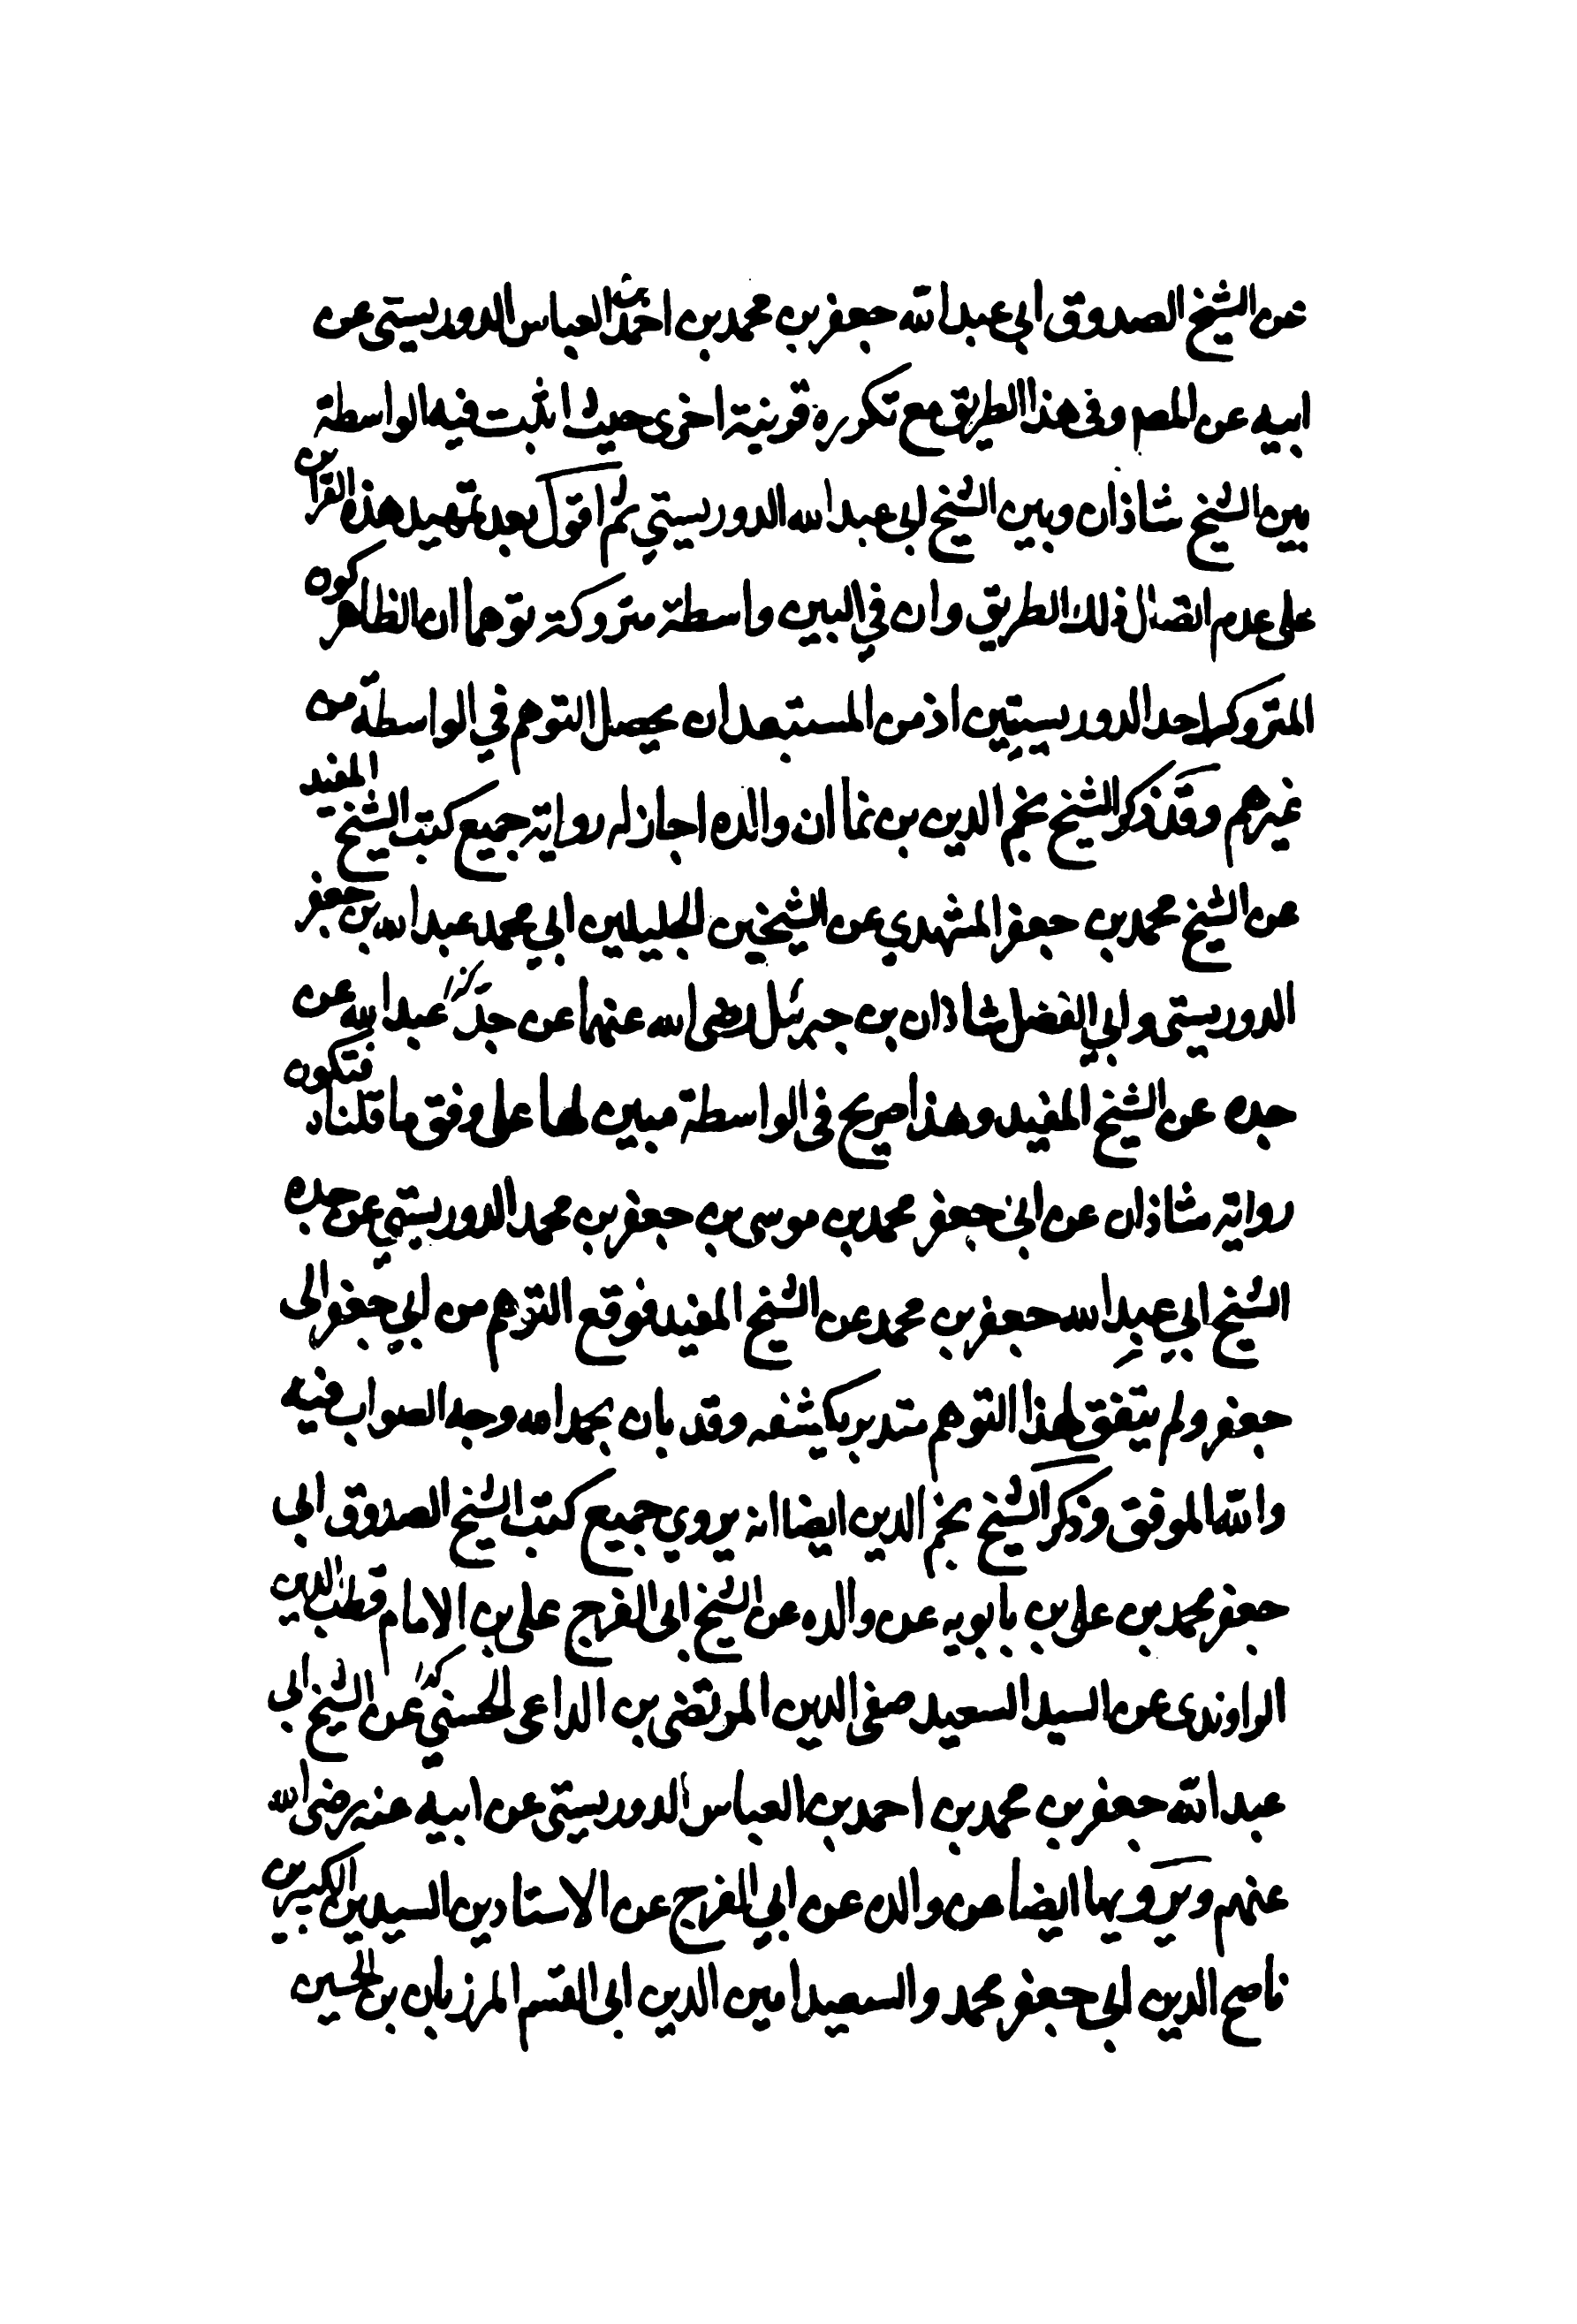 عن الشيخ الصدوق ابي عبد الله جعفر بن محمد بن احمد بن العباس الدوريستي عن
ابيه عن المصـ وفي هذا الطريق مع تكرره قرينة اخرى حيث اثبت فيه الواسطة
بين الشيخ شاذان وبين الشيخ ابي عبد الله الدوريستي ثم اقول بعد تمهيد هذه القراين
على عدم اتصال ذلك الطريق وان في البين واسطة متروكة توهما ان الظاهر كون
المتروك احد الدوريستيين اذ من المستبعد ان يحصل التوهم في الواسطة من
غيرهم وقد ذكر الشيخ نجم الدين بن نما ان والده اجاز له رواية جميع كتب الشيخ المفيد
عن الشيخ محمد بن جعفر المشهدي عن الشيخين الجليلين ابي محمد عبد الله بن جعفر
الدوريستي وابي الفضل شاذان بن جبرئيل رضي الله عنهما عن جد عبد الله عن
جده عن الشيخ المفيد وهذا صريح في الواسطة مبين لها على وفق ما قلناه فتكون
رواية شاذان عن ابي جعفر محمد بن موسى بن جعفر بن محمد الدوريستي عن جده
الشيخ ابي عبد الله جعفر بن محمد عن الشيخ المفيد فوقع التوهم من ابي جعفر الى
جعفر ولم يتفق لهذا التوهم متدبر يكشفه وقد بان بحمد الله وجه الصواب فيه
والله الموفق وذكر الشيخ نجم الدين ايضا انه يروي جميع كتب الشيخ الصدوق ابي
جعفر محمد بن علي بن بابويه عن والده عن الشيخ ابي الفرج علي بن الامام قطب الدين
الراوندي عن السيد السعيد صفي الدين المرتضى بن الداعي الحسني عن الشيخ ابي
عبد الله جعفر بن محمد بن احمد بن العباس الدوريستي عن ابيه عنه رضي الله
عنهم ويرويها ايضا عن والده عن ابي الفرج عن الاستادين السيدين الكبيرين
ناصح الدين ابي جعفر محمد والسعيد امين الدين ابي القسم المرزبان بن الحسين